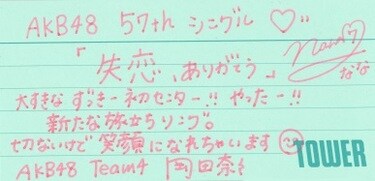 AKB48 57th シングル ♡
「失恋、ありがとう」
Nana♡
なな
大すきな ずっきー初センター!! やったー!!
新たな旅立ちソング。
切ないけど笑顔になれちゃいます
TOWER
AKB48 Team4 岡田奈々